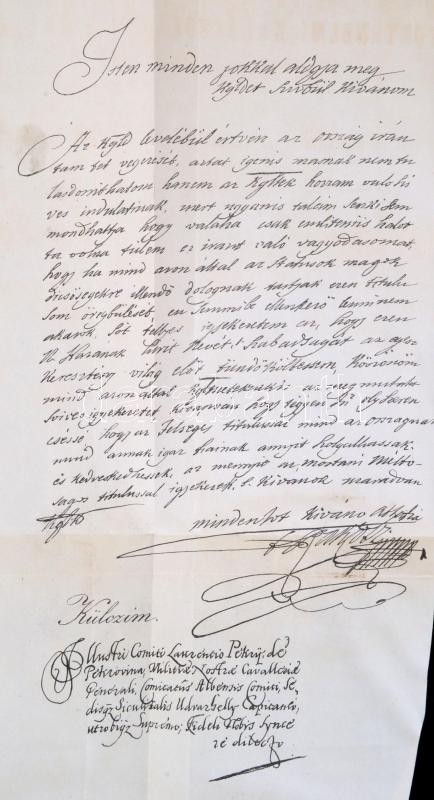 Isten minden jokkal aldgya meg
Kgldet szivbül Kivánom
Az Kgld levelébül értvén az ország irán
tam tet végezését, aztat igenis magnak nem tu
lasdonithatom hanem az Kgltek hozzam való hi
ves indulatnak, mert ugyanis talám senki sem
mondhattya hogy valaha csak emliteniis halot
ta volna tűlem ez iránt való vagyodasomat,
hogy ha mind azon által az Statusok magok
dicsőségekre illendő dolognak tartják ezen titulu
som öregbülését, én semmibe ellenkező lenni nem
akarok, Söt telbes igyekezetem az, hogy ezen
N. Hazának hirit Nevét s Szabadságát az egesz
Keresztény világ előt tündökültessem, Köszönöm
mind azon által Kglteteknek az megmutatot
szives igyekezetet kivánván hogy légyen oly
hogy az Felséges titulussal mind az országnak
mind annak igaz fiainak annyit szolgálhassak
és kedveskedhessek, az mennyit az mostani Mélto
ságos titulussal igyekezek. S Kivánok maradván
Kgltk
mindenkor Kivano Attyafia
Külczim.
Illustri Comiti Laurencio Pekry de
Petrovina, Militiæ Nostræ Cavalleriæ
Generali, Comitatûs Albensis Comiti, Se
disq Siculicalis Udvarhelly Capitaneo,
utrobiq Supremo; Fideli Nobis Synce
rè dilecto